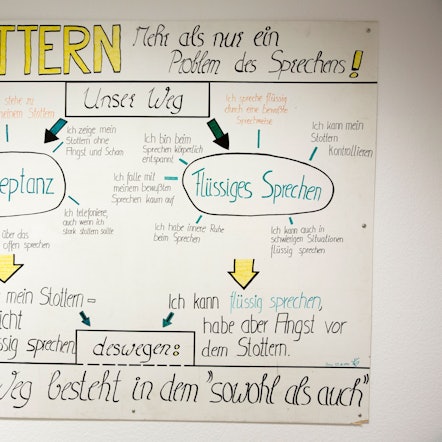 TTERN Mehr als nur ein
Problem des Sprechens!
Unser Weg
stehe zu
meinem Stottern
Ich zeige mein
Stottern ohne
Angst und Scham
eptanz
Ich telefoniere,
auch wenn ich
stark stottern sollte
über das
offen sprechen
Ich spreche flüssig
durch eine bewußte
Sprechweise
Ich bin beim
Sprechen körperlich
entspannt
Ich kann mein
Stottern
Kontrollieren
Ich falle mit
meinem bewußten
Sprechen kaum auf
Flüssiges Sprechen
Ich habe innere Ruhe
beim Sprechen
Ich kann auch in
schwierigen Situationen
flüssig sprechen
mein Stottern -
icht
ssig sprechen
Ich kann flüssig sprechen,
habe aber Angst vor
dem Stottern.
deswegen:
Weg besteht in dem "sowohl als auch"